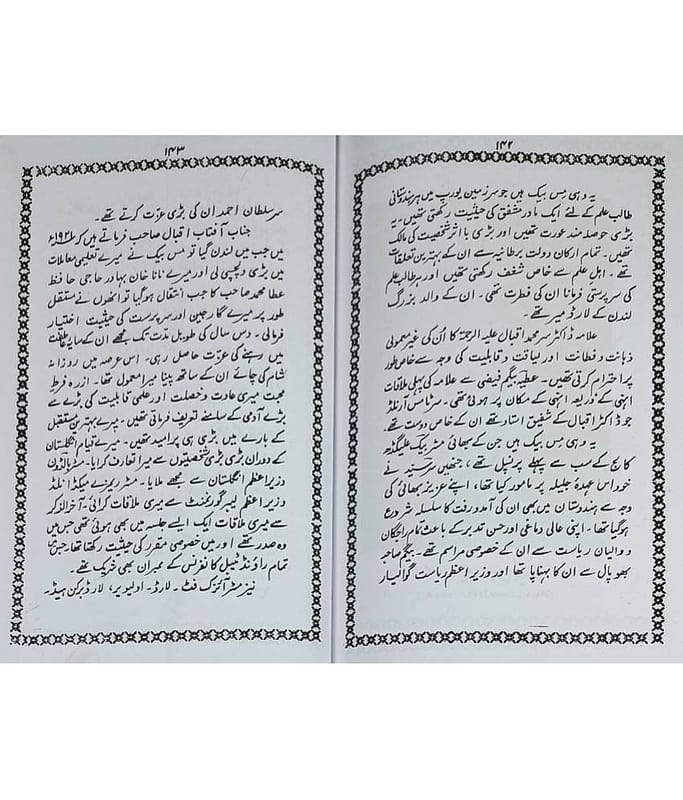 ۱۴۲
یہ وہی مس بیک ہیں جو سرزمین یورپ میں ہر ہندوستانی
طالب علم کے لئے ایک مادر مشفق کی حیثیت رکھتی تھیں۔ یہ
بڑی حوصلہ مند عورت تھیں اور بڑی با اثر شخصیت کی مالک
تھیں۔ تمام ارکان دولت برطانیہ سے ان کے بہترین تعلقات
تھے۔ اہل علم سے خاص شغف رکھتی تھیں اور ہر طالب علم
کی سرپرستی فرمانا ان کی فطرت تھی۔ ان کے والد بزرگ
لندن کے لارڈ میر تھے۔
علامہ ڈاکٹر سر محمد اقبال علیہ الرحمۃ کا اُن کی غیر معمولی
ذہانت و فطانت اور لیاقت و قابلیت کی وجہ سے خاص طور
پر احترام کرتی تھیں۔ عطیہ بیگم فیضی سے علامہ کی پہلی ملاقات
انہی کے ذریعہ انہی کے مکان پر ہوئی تھی۔ سر ٹامس آرنلڈ
جو ڈاکٹر اقبال کے شفیق استاد تھے ان کے خاص دوست تھے۔
یہ وہی مس بیک ہیں جن کے بھائی مسٹر بیک علیگڈھ
کالج کے سب سے پہلے پرنسپل تھے، جنھیں سر سید نے
خود اس عہدۂ جلیلہ پر مامور کیا تھا، اپنے عزیز بھائی کی
وجہ سے ہندوستان میں بھی ان کی آمد و رفت کا سلسلہ شروع
ہو گیا تھا۔ اپنی عالی دماغی اور حسن تدبر کے باعث تمام راجگان
و والیان ریاست سے ان کے خصوصی مراسم تھے۔ بیگم صاحبہ
بھوپال سے ان کا بہناپا تھا اور وزیر اعظم ریاست گوالیار
۱۴۳
سر سلطان احمد ان کی بڑی عزت کرتے تھے۔
جناب آفتاب اقبال صاحب فرماتے ہیں کہ ۱۹۲۱ء
میں جب میں لندن گیا تو مس بیک نے میرے تعلیمی معاملات
میں بڑی دلچسپی لی اور میرے نانا خان بہادر حاجی حافظ
عطا محمد صاحب کا جب انتقال ہو گیا تو انھوں نے مستقل
طور پر میرے گارجین اور سرپرست کی حیثیت اختیار
فرمالی۔ دس سال کی طویل مدت تک مجھے ان کے سایۂ عاطفت
میں رہنے کی عزت حاصل رہی۔ اس عرصہ میں روزانہ
شام کی چائے ان کے ساتھ پینا میرا معمول تھا۔ ازرہ فرط
محبت میری عادت و خصلت اور علمی قابلیت کی بڑے سے
بڑے آدمی کے سامنے تعریف فرماتی تھیں۔ میرے بہترین مستقبل
کے بارے میں بڑی ہی پر امید تھیں۔ میرے قیام انگلستان
کے دوران بڑی بڑی شخصیتوں سے میرا تعارف کرایا۔ مسٹر بالڈون
وزیر اعظم انگلستان سے مجھے ملایا۔ مسٹر ریمزے میکڈانلڈ
وزیر اعظم لیبر گورنمنٹ سے میری ملاقات کرائی۔ آخر الذکر
سے میری ملاقات ایک ایسے جلسہ میں بھی ہوئی تھی جس میں
وہ صدر تھے اور میں خصوصی مقرر کی حیثیت رکھتا تھا، جس میں
تمام راؤنڈ ٹیبل کانفرنس کے ممبران بھی شریک تھے۔
نیز مسٹر آئزک فٹ۔ لارڈ۔ اولیویر، لارڈ برکن ہیڈ۔